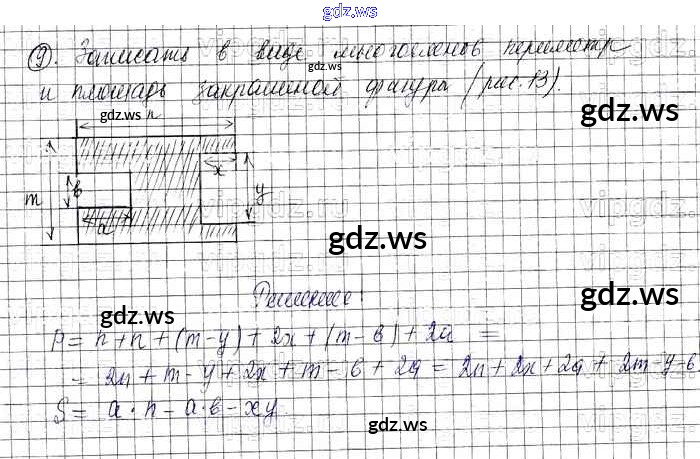 gdz.ws
9. Записать в виде многочленов периметр
gdz.ws
и площадь закрашеной фигуры (рис. 13).
gdz.ws n
gdz.ws
x
в
m
y
a
gdz.ws
Решение:
gdz.ws
gdz.ws
P = n + n + (m - y) + 2x + (m - в) + 2a =
= 2n + m - y + 2x + m - в + 2a = 2n + 2x + 2a + 2m - y - в
S = a · n - a · в - xy
gdz.ws